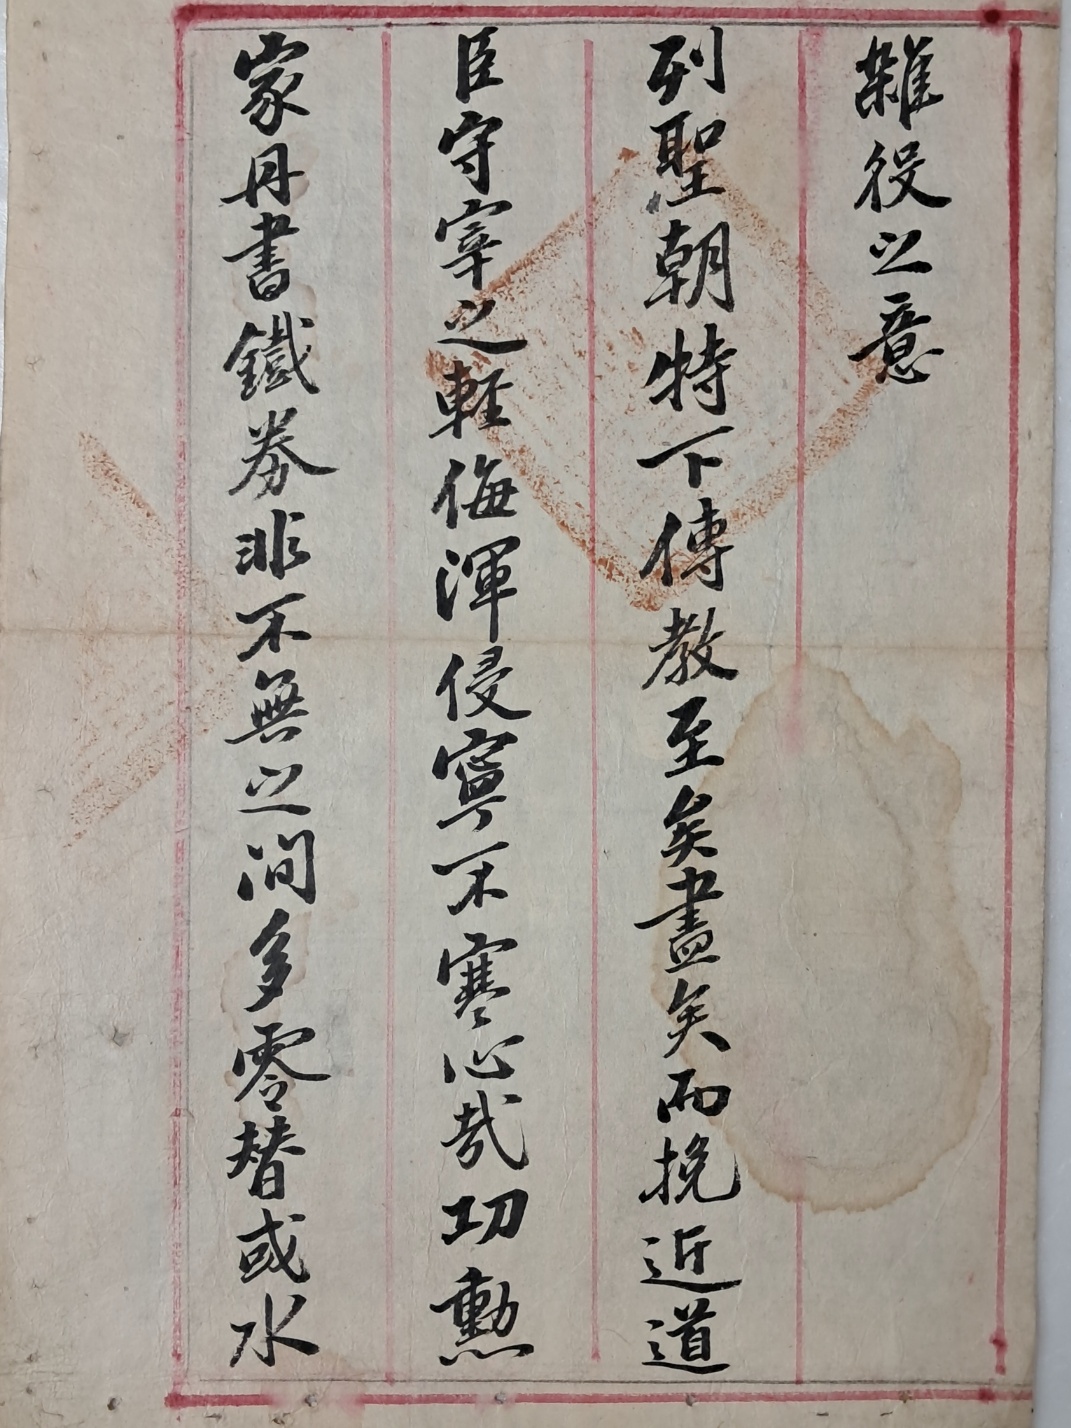 雜役之意
列聖朝特下傳教至矣盡矣而挽近道
臣守宰之輕侮渾侵寧不寒心哉功勳
家丹書鐵券非不無之間多零替或水